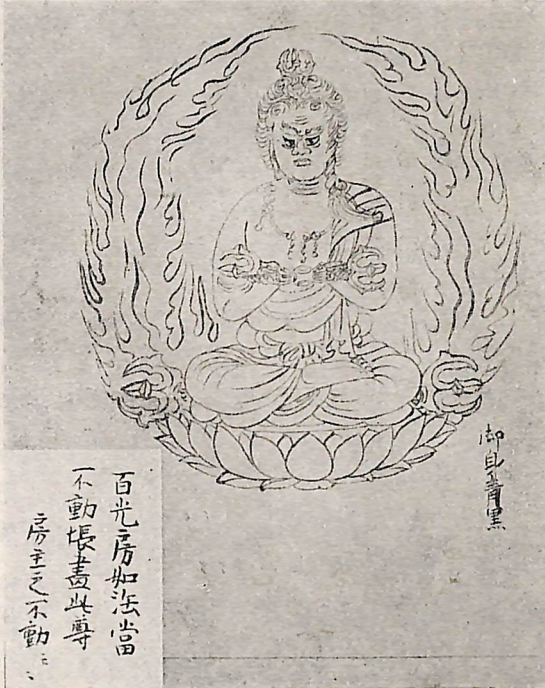 御身青黒
百光房如法當
不動帳畫此尊
房主之不動